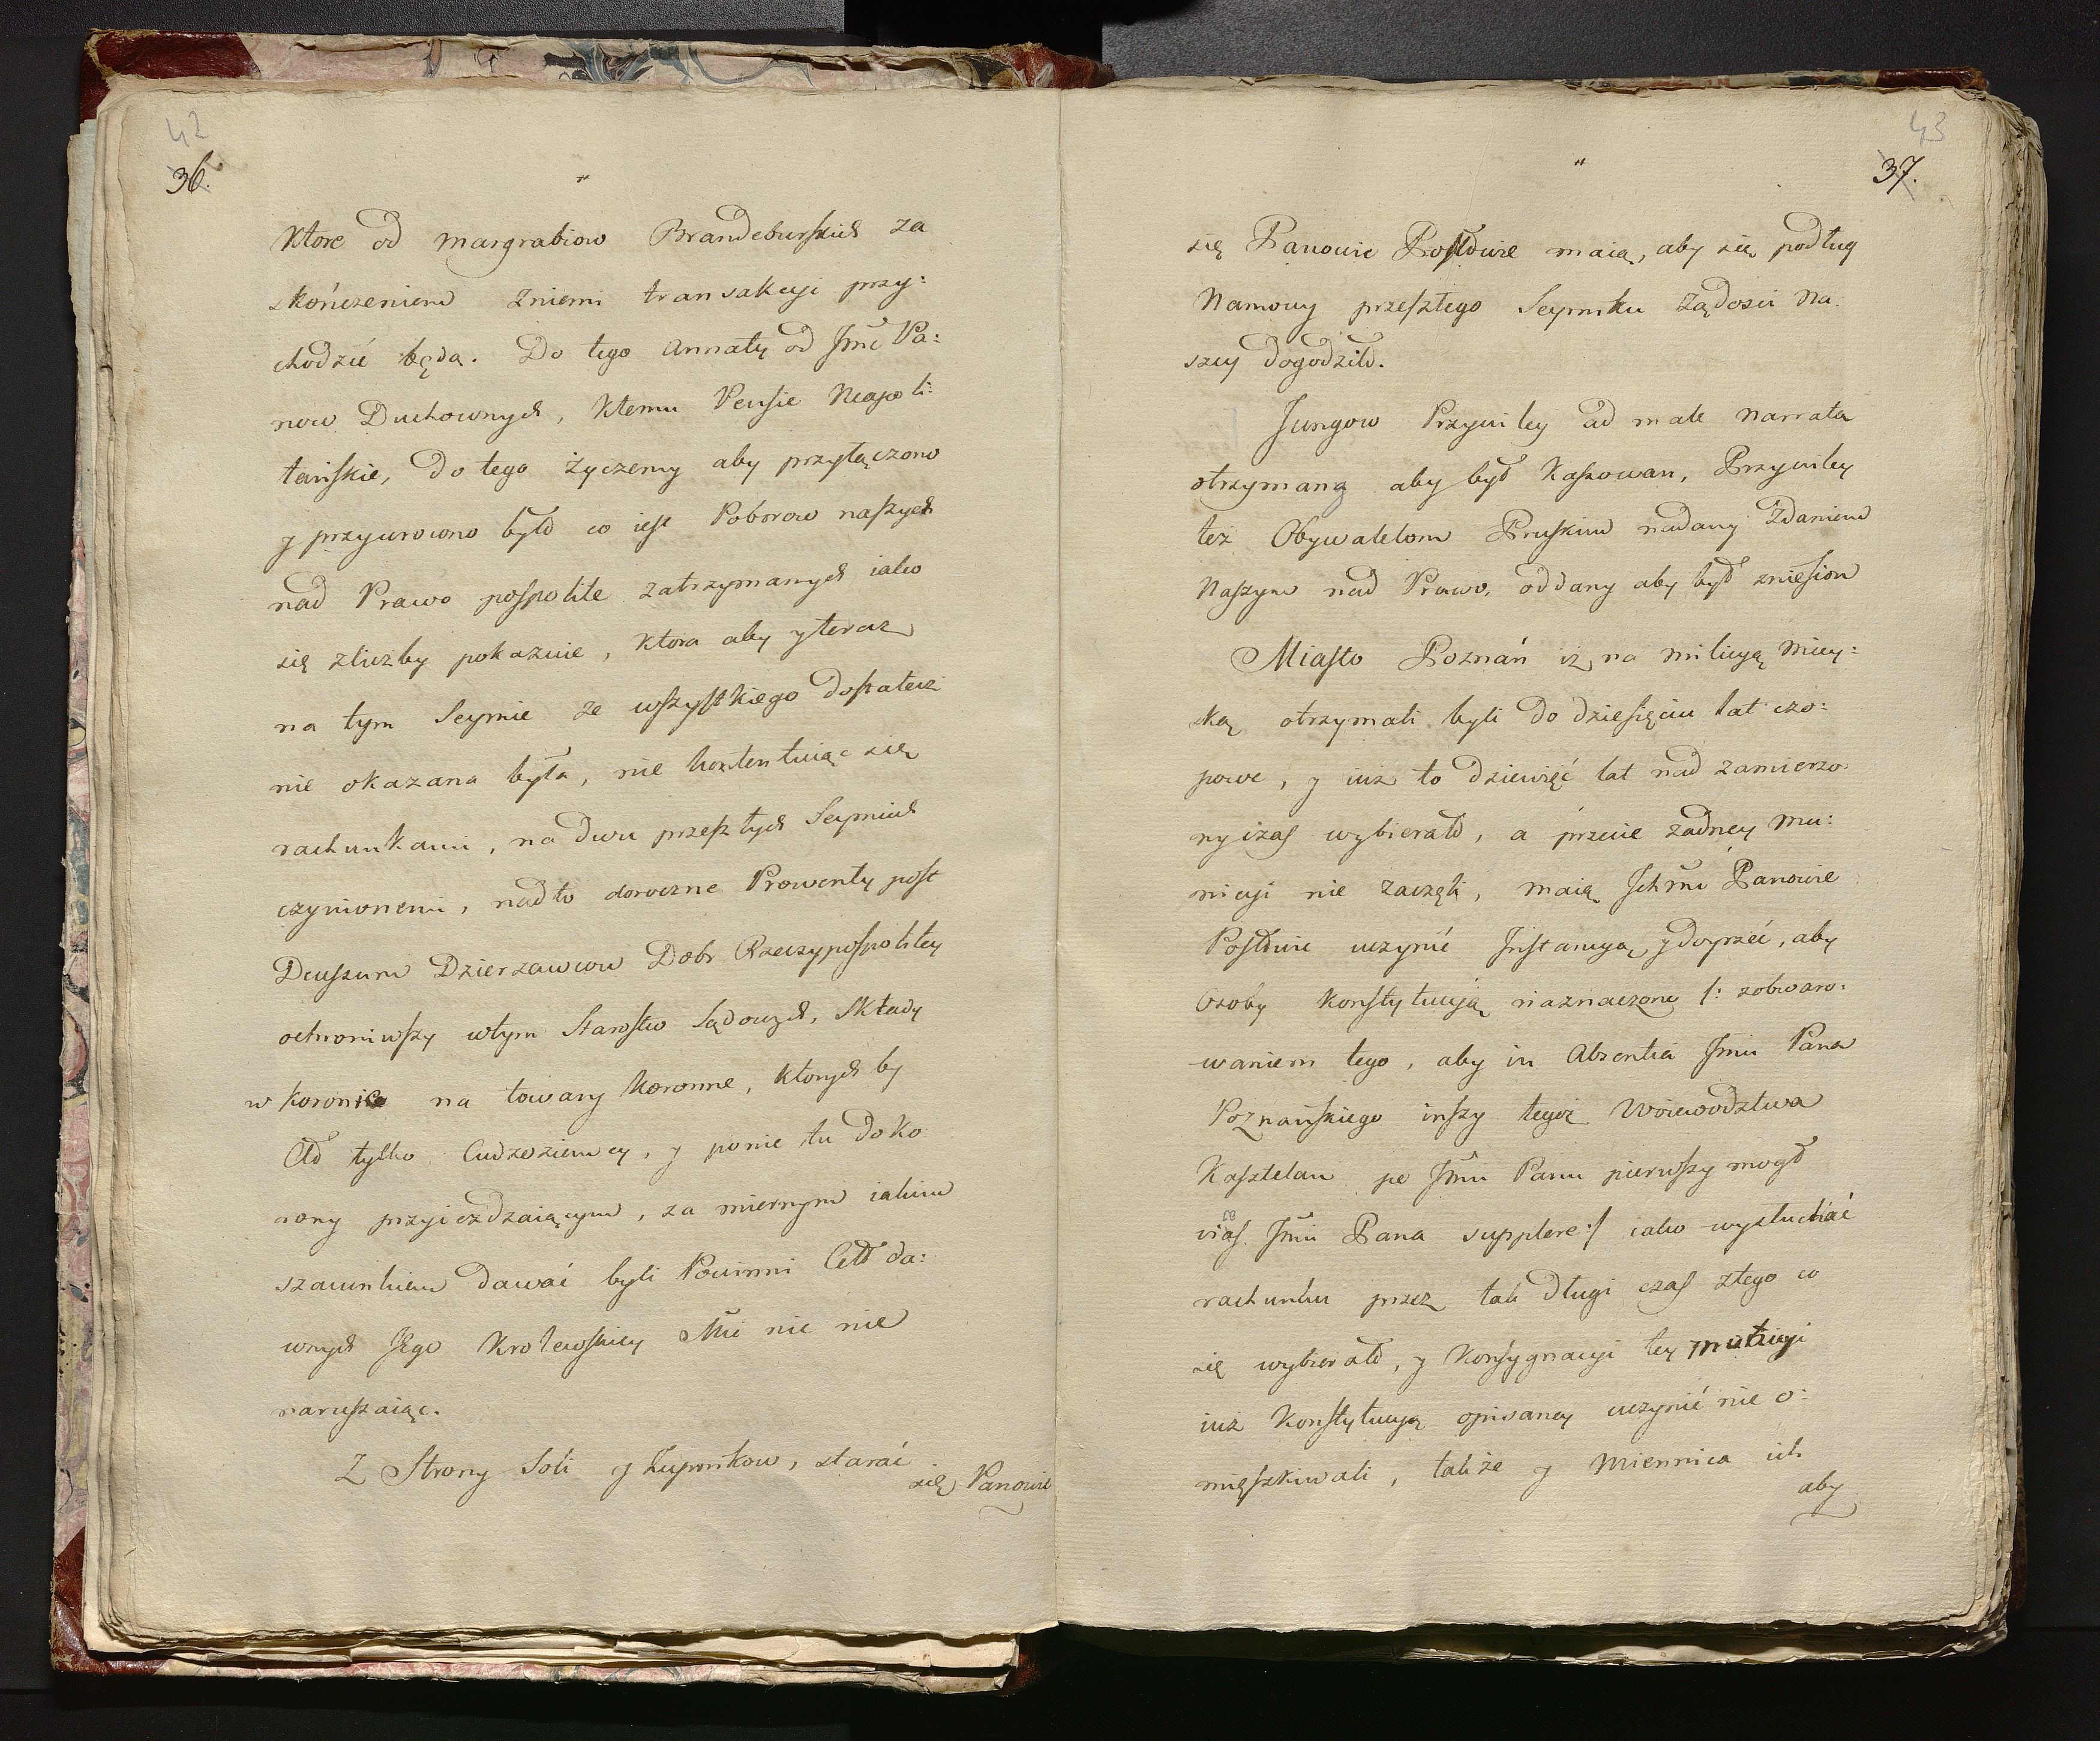 42
36.
Ktore od margrabiow Brandeburskich za
skończeniem z niemi transakcyi przy:
chodzić będą. Do tego Annaty od Jmć Pa:
now Duchownych, Ktemu Pensie Neapoli:
tańskie, do tego życzemy aby przyłączono
y przywrocono było co iest Poborow naszych
nad Prawo pospolite zatrzymanych iako
się zliczby pokazuie, Ktora aby y teraz
na tym Seymie ze wszystkiego dostatecz
nie okazana była, nie kontentuiąc się
rachunkami, na dwu przeszłych Seymiech
czynionemi, nadto doroczne Prowenty post
Decessum Dzierzawcow Dobr Rzeczypospolitey
ochroniwszy wtym Starostw Sądowych, Składy
w Koronie na towary Koronne, Ktorych by
Cło tylko Cudzoziemcy, y ponie tu do Ko
rony przyiezdzaiącym, za miernym iakim
szacunkiem dawać byli Powinni Cełł da:
wnych Jego Krolewskiey Mci nic nie
naruszaiąc.
Z Strony Soli y Żupnikow, starać
się Panowie
43
37.
się Panowie Posłowie maią, aby się podług
Namowy przeszłego Seymiku Żądosci Na:
szey dogodziło.
Jungow Przywiley ad male narrata
otrzymany aby był Kassowan, Przywiley
też Obywatelom Pruskim nadany Zdaniem
Naszym nad Prawo, oddany aby był zniesion
Miasto Poznań iż na milicyą miey:
ską otrzymali byli do dziesięciu lat czo:
powe, y iuż to dziewięć lat nad zamierzo
ny czas wybierało, a przecie żadney mu:
nicyi nie zaczęli, maią Ichmć Panowie
Posłowie uczynić Instancyą y doyrzeć, aby
Osoby Konstytucyą naznaczone /: zobwaro:
waniem tego, aby in Absentia Jmci Pana
Poznańskiego inszy tegoż Woiewodztwa
Kasztelan po Jmci Panu pierwszy mogł
vices Jmci Pana supplere :/ iako wysłuchać
rachunku przez tak długi czas ztego co
się wybierało, y Konsygnacyi tey municyi
iuż Konstytucyą opisaney uczynić nie o:
mięszkiwali, także y Miennica ich
aby